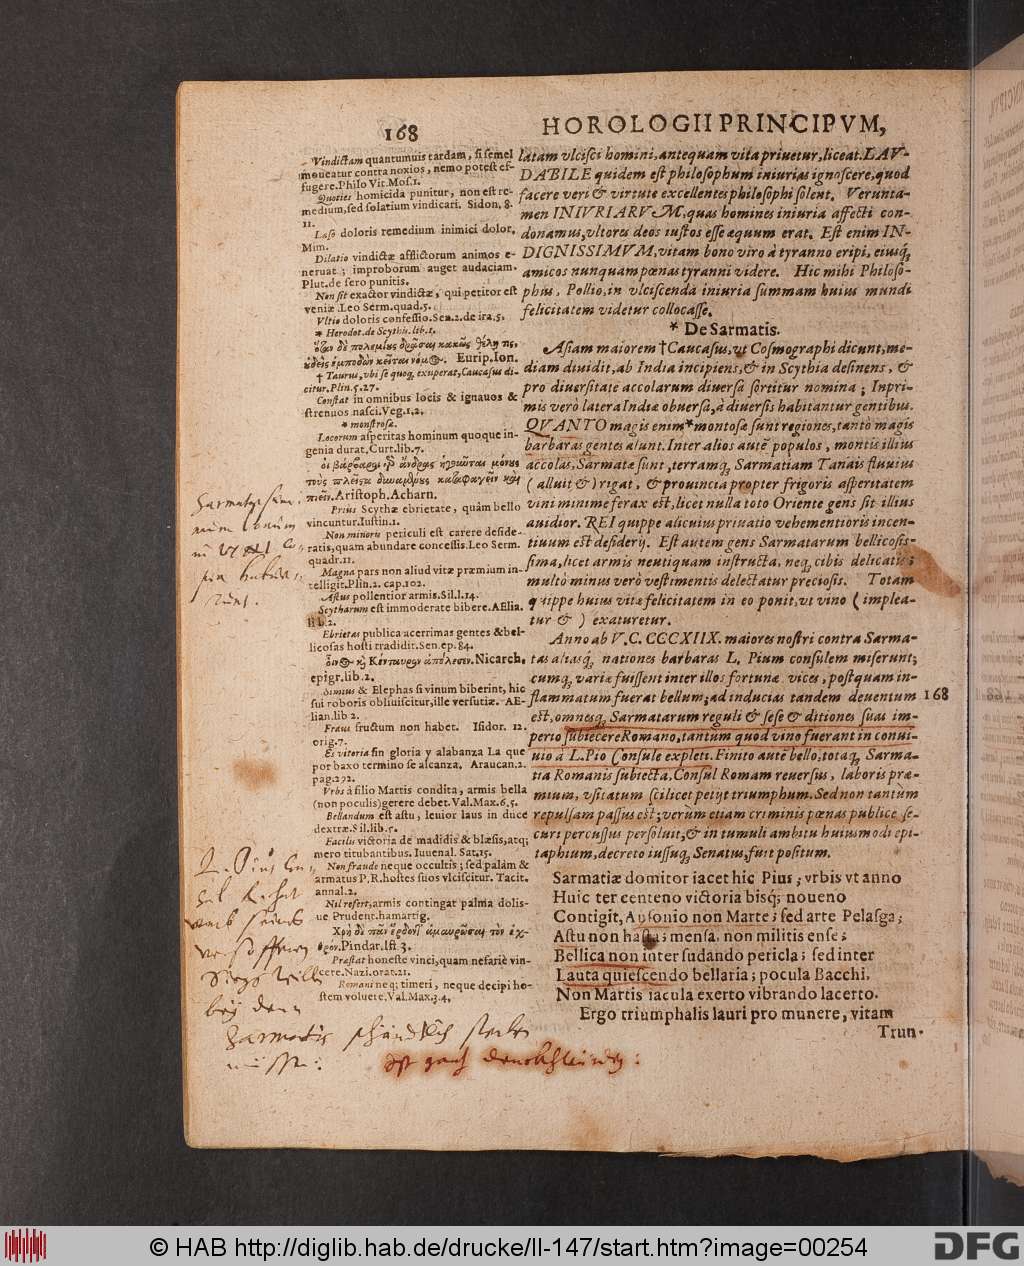 168
HOROLOGII PRINCIPVM,
Vindictam quantumuis tardam, si semel
moueatur contra noxios, nemo potest ef-
fugere. Philo Vit. Mos. 1.
Quoties homicida punitur, non est re-
medium, sed solatium vindicari. Sidon. 8.
11.
Læso doloris remedium inimici dolor.
Mim.
Dilatio vindictæ afflictorum animos e-
neruat; improborum auget audaciam.
Plut. de sero punitis.
Non sit exactor vindictæ, qui petitor est
veniæ. Leo Serm. quad. 5.
Vltio doloris confessio. Sen. 2. de ira. 5.
* Herodot. de Scythis. lib. 1.
Eurip. Ion.
† Taurus, vbi se quoq; exuperat, Caucasus di-
citur. Plin. 5. 27.
Constat in omnibus locis & ignauos &
strenuos nasci. Veg. 1. 2.
* monstrosæ.
Locorum asperitas hominum quoque in-
genia durat. Curt. lib. 7.
οἱ βάρβαροι γὸ ἄνδρας ἡγοῦνται μόνους
τοὺς πλεῖστα δυναμένους καταφαγεῖν καὶ
πιεῖν. Aristoph. Acharn.
Prius Scythæ ebrietate, quàm bello
vincuntur. Iustin. 1.
Non minoris periculi est carere deside-
ratis, quam abundare concessis. Leo Serm.
quadr. 11.
Magna pars non aliud vitæ præmium in-
telligit. Plin. 2. cap. 102.
Astus pollentior armis. Sil. l. 14.
Scytharum est immoderate bibere. AElia.
lib. 2.
Ebrietas publica acerrimas gentes & bel-
licosas hosti tradidit. Sen. ep. 84.
οἶνος καὶ Κένταυρον ἀπώλεσεν. Nicarch.
epigr. lib. 2.
Simius & Elephas si vinum biberint, hic
sui roboris obliuiscitur, ille versutiæ. AE-
lian. lib 2.
Fraus fructum non habet. Isidor. 12.
orig. 7.
Es vitoria sin gloria y alabanza La que
por baxo termino se alcanza. Araucan. 2.
pag. 292.
Vrbs à filio Martis condita, armis bella
(non poculis) gerere debet. Val. Max. 6. 5.
Bellandum est astu, leuior laus in duce
dextræ. Sil. lib. 5.
Facilis victoria de madidis & blæsis, atq;
mero titubantibus. Iuuenal. Sat. 15.
Non fraude neque occultis; sed palàm &
armatus P. R. hostes suos vlciscitur. Tacit.
annal. 2.
Nil refert, armis contingat palma dolis-
ue Prudent. hamartig.
Χρὴ δὲ πᾶν ἔρδοντ' ἀμαυρῶσαι τὸν ἐχ-
θρόν. Pindar. Ist. 3.
Præstat honeste vinci, quam nefariè vin-
cere. Nazi. orat. 21.
Romani neq; timeri, neque decipi ho-
stem voluere. Val. Max. 3. 4.
latam vlcisci homini, antequam vita priuetur, liceat. LAV-
DABILE quidem est philosophum iniurias ignoscere, quod
facere veri & virtute excellentes philosophi solent. Verunta-
men INIVRIARVM, quas homines iniuria affecti con-
donamus, vltores deos iustos esse æquum erat. Est enim IN-
DIGNISSIMVM, vitam bono viro à tyranno eripi, eiusq́;
amicos nunquam pœnas tyranni videre. Hic mihi Philoso-
phus, Pollio, in vlciscenda iniuria summam huius mundi
felicitatem videtur collocasse.
* De Sarmatis.
Asiam maiorem † Caucasus, vt Cosmographi dicunt, me-
diam diuidit, ab India incipiens, & in Scythia desinens, &
pro diuersitate accolarum diuersa sortitur nomina; Inpri-
mis verò latera Indiæ obuersa, à diuersis habitantur gentibus.
QVANTO magis enim * montosæ sunt regiones, tantò magis
barbaras gentes alunt. Inter alios autẽ populos, montis illius
accolas, Sarmatæ sunt, terramq́; Sarmatiam Tanais fluuius
(alluit &) rigat, & prouincia propter frigoris asperitatem
vini minime ferax est, licet nulla toto Oriente gens sit illius
auidior. REI quippe alicuius priuatio vehementioris incen-
tiuum est desiderij. Est autem gens Sarmatarum bellicosis-
sima, licet armis neutiquam instructa, neq; cibis delicatis;
multò minus verò vestimentis delectatur preciosis. Totam
quippe huius vitæ felicitatem in eo ponit, vt vino (implea-
tur &) exaturetur.
Anno ab V. C. CCCXIIX. maiores nostri contra Sarma-
tas aliasq́; nationes barbaras L. Pium consulem miserunt;
cumq́; variæ fuissent inter illos fortunæ vices, postquam in-
flammatum fuerat bellum; ad inducias tandem deuentum
est, omnesq; Sarmatarum reguli & sese & ditiones suas im-
perio subiecere Romano, tantum quod vino fuerant in conui-
uio à L. Pio Consule expleti. Finito autẽ bello, totaq́; Sarma-
tia Romanis subiecta. Consul Romam reuersus, laboris præ-
mium, vsitatum scilicet petijt triumphum. Sed non tantum
repulsam passus est; verùm etiam criminis pœnas publice se-
curi percussus persoluit, & in tumuli ambitu huiusmodi epi-
taphium, decreto iussuq́; Senatus, fuit positum.
168
Sarmatiæ domitor iacet hic Pius; vrbis vt anno
Huic ter centeno victoria bisq́; noueno
Contigit, Ausonio non Marte; sed arte Pelasga;
Astu non hasta; mensa, non militis ense;
Bellica non inter sudando pericla; sed inter
Lauta quiescendo bellaria; pocula Bacchi,
Non Martis iacula exerto vibrando lacerto.
Ergo triumphalis lauri pro munere, vitam
Trun-
© HAB http://diglib.hab.de/drucke/ll-147/start.htm?image=00254
DFG